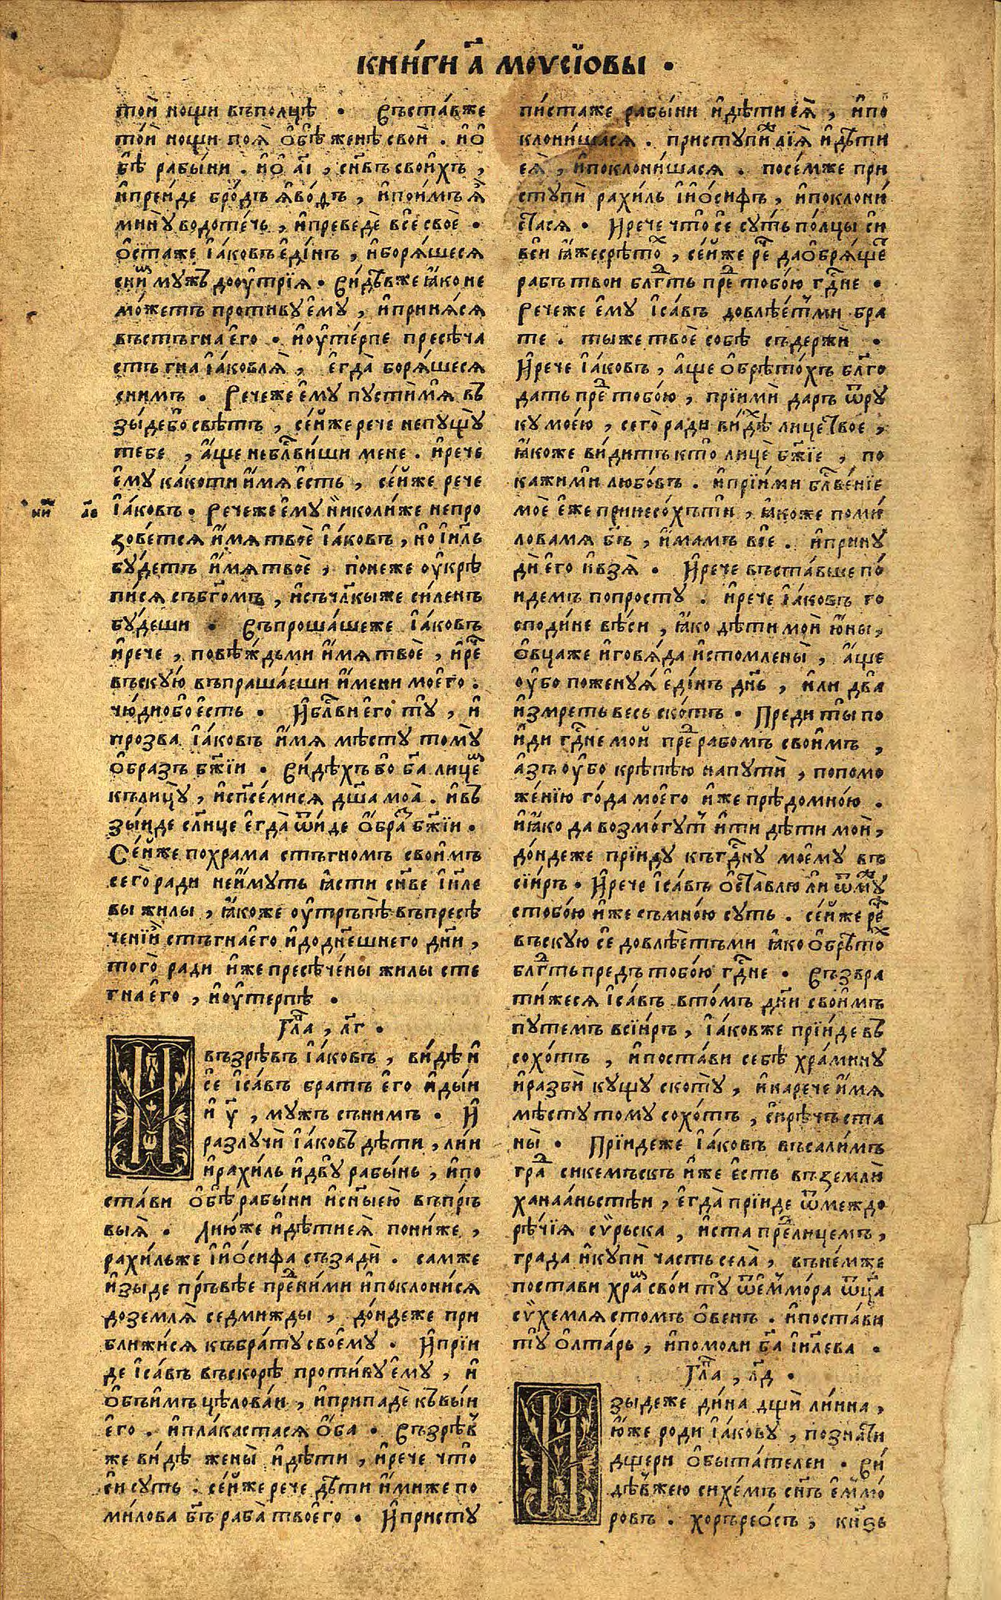 кни́ги а҃ моѵсі́ѡвы •
той нощи въполцѣ • Въставже
той нощи поѧ̀ о҆бѣ женѣ свои҆ . и҆о҆
бѣ рабы́ни . и҆о҆ а҃і , сн҃въ свои́хъ ,
и҆прейде бро́дъ ꙗ҆во́дъ , и҆пои́мъ ѧ҆̀
мину̀ водоте́чь , и҆преведѐ все̂ своѐ •
о҆ста́же і҆а́ковъ е҆ди́нъ , и҆борѧ́шесѧ
сни́м мужъ доо҆у́трїѧ • Ви́дѣвже ꙗ҆́ко не
мо́жетъ противу е҆му̀ , и҆принѧ́сѧ
въстѣгна̀ е҆го̀ • и҆оу҆те́рпе пресѣча
стъ гна̀ і҆а́ковлѧ , е҆гда̀ борѧ́шесѧ
сни́мъ • Рече́же е҆му̀ пусти́мѧ въ
зы́де бо свѣтъ , се́йже рече непущу̀
тебе , а҆́ще небл҃ви́ши мене . и҆рече
е҆му̀ ка́коти и҆́мѧ е҆́сть , се́йже рече
і҆а́ковъ • Рече́же е҆му̀ николи́же непро
зове́тсѧ и҆́мѧ твоѐ і҆а́ковъ , но̀ і҆и҃ль
бу́детъ и҆́мѧ твоѐ , понеже оу҆крѣ
пи́сѧ съ бг҃омъ , и҆съчл҃кы́же си́ленъ
бу́деши • Въпроша́шеже і҆а́ковъ
и҆рече , повѣ́ждьми и҆́мѧ твоѐ , и҆ре҃
въску́ю въпраша́еши и҆́мени моего̀ .
чю́дно бо е҆́сть • И҆бл҃ви е҆го̀ ту̀ , и҆
прозва̀ і҆а́ковъ и҆́мѧ мѣ́сту тому̀
о҆́бразъ бж҃їи • Ви́дѣхъ бо бг҃а лице́м
къ лицу̀ , и҆спсе́мисѧ дш҃а моѧ̀ . и҆въ
зы́иде сл҃нце е҆гда̀ ѿи́де о҆́браз бж҃їи •
Се́йже похрама̀ стъгномъ свои́мъ
сего̀ ра́ди неи́муть ꙗ҆́сти сн҃ве і҆и҃ле
вы жи́лы , ꙗ҆́коже оу҆тръ́пѣ въпресѣ
че́нїи стъгна̀ е҆го̀ и҆додн҃ешнего дн҃и ,
того̀ ра́ди и҆́же пресѣче́ны жи́лы сте
гна̀ е҆го̀ , и҆оу҆терпѣ •
гла , лг •
И
въ́зрѣвъ і҆а́ковъ , ви́дѣ и҆
сѐ і҆са́въ братъ е҆го̀ и҆ды́и
и҆ у҃ , мужъ сни́мъ • И҆
разлучи̂ і҆а́ковъ дѣ́ти , лі́и
и҆рахи́ль и҆дву̀ рабы́нь , и҆по
ста́ви о҆́бѣ рабы́ни и҆сы́ею въпръ
выѧ̀ • Лію́же и҆дѣтиеѧ̀ пони́же ,
рахи́льже і҆и҆о́сифа съза́ди . самже
и҆зы́де пръвѣе пред ни́ми и҆поклони́сѧ
доземлѧ̀ седми́жды , до́ндеже при
бли́жисѧ къбра́ту своему̀ • И҆прїи
де і҆са́въ въскорѣ противу е҆му̀ , и҆
о҆бъи́мъ цѣлова́и , и҆припаде къвы́и
е҆го̀ . и҆пла́кастасѧ о҆́ба • Възрѣв
же ви́дѣ жены̀ и҆дѣ́ти , и҆рече что̀
си сѹть . се́йже рече дѣ́ти и҆ми́же по
ми́лова бг҃ъ раба̀ твоего • И҆присту
пи́стаже рабы́ни и҆дѣ́ти еѧ̀ , и҆по
клони́шасѧ . приступи́ж лі́ѧ и҆дѣ́ти
еѧ̀ , и҆поклони́шасѧ . посе́мже при
ступи рахи́ль і҆и҆о́сифъ , и҆поклони́
стасѧ • И҆рече что̀ се̂ сѹть полцы си
вси̂ ꙗ҆́жесрѣто́х , се́йже ре҃ даобрѧ́щет
рабъ твои бл҃гть пред тобо́ю гд҃не •
Рече́же е҆му̀ і҆са́въ довлѣ́етми бра
те . ты́же твоѐ собѣ̀ съдержи̂ •
И҆рече і҆а́ковъ , а҆́ще о҆брѣто́хъ бл҃го
дать пред тобо́ю , прїими̂ даръ ѿру
ку̀ мое́ю , сего̀ ра́ди ви́дѣх лице твое ,
ꙗ҆́коже ви́дитъ кто̀ лицѐ бж҃їе , по
кажи́ми любо́вь . и҆прїими̂ бл҃ве́нїе
моѐ е҆́же принесо́хъти , ꙗ҆́коже поми́
ловамѧ бг҃ъ , и҆́мамъ все̂ . и҆прину
ди̂ е҆го̀ и҆взѧ̀ • И҆рече въста́вше по́
идемъ попросту . и҆рече і҆а́ковъ го
споди́не вѣ́си , ꙗ҆́ко дѣ́ти мои̂ ю҆ны̀ ,
о҆вца́же и҆говѧ́да и҆стомлены̀ , а҆́ще
оу҆́бо поженуѧ̀ е҆ди́нъ дн҃ь , и҆ли два̀
и҆змретъ весь ско́тъ • Преди ты̀ по
и҆ди гд҃не мо́и пред рабо́мъ свои́мъ ,
а҆́зъ оу҆́бо крѣплю напути̂ , попомо
же́нїю го́да моего̀ и҆́же прѣдомно́ю .
и҆ꙗ҆́ко да возмо́гут и҆ти дѣ́ти мои̂ ,
до́ндеже прїиду къгд҃ну моему въ
сіи́ръ • И҆рече і҆са́въ о҆ста́влю ли ѿму́ж
стобо́ю и҆́же съмно́ю сѹть . се́йже ре҃
въску́ю се̂ довлѣ́етъми ꙗ҆́ко о҆брѣто́х
бл҃гть предъ тобо́ю гд҃не • Възвра
ти́жесѧ і҆са́въ вто́мъ дн҃и свои́мъ
путемъ всіи́ръ , і҆а́ковже прїиде въ
сохо́ѳъ , и҆поста́ви себѣ хра́мину
и҆разби̂ кущу скоту̀ , и҆нарече и҆́мѧ
мѣ́сту тому сохо́ѳъ , си́рѣчь ста
ны̀ • Прїи́деже і҆а́ковъ въсали́мъ
град сике́мъскъ и҆́же е҆́сть въземли̂
ханаа́ньстѣи , е҆гда̀ прїи́де ѿмеждо
рѣ́чїѧ сѵ́рьска , и҆ста̀ пред лице́мъ ,
гра́да и҆купи̂ часть села̀ , въне́мже
поста́ви храм сво́и ту̀ ѿе҆ммо́ра ѿца̀
сѵхемлѧ стомъ о҆́венъ . и҆поста́ви
ту̀ о҆лта́рь , и҆помоли́ бг҃а і҆и҃лева •
гла , лд •
И
зы́деже ди́на дщи лі́ина ,
ю҆́же роди і҆а́кову , позна́ти
дщери о҆быта́телеи • Ви́
дѣвжею сихе́мъ сн҃ъ е҆ммо́
ровъ . хорьрео́съ , кнѧзь